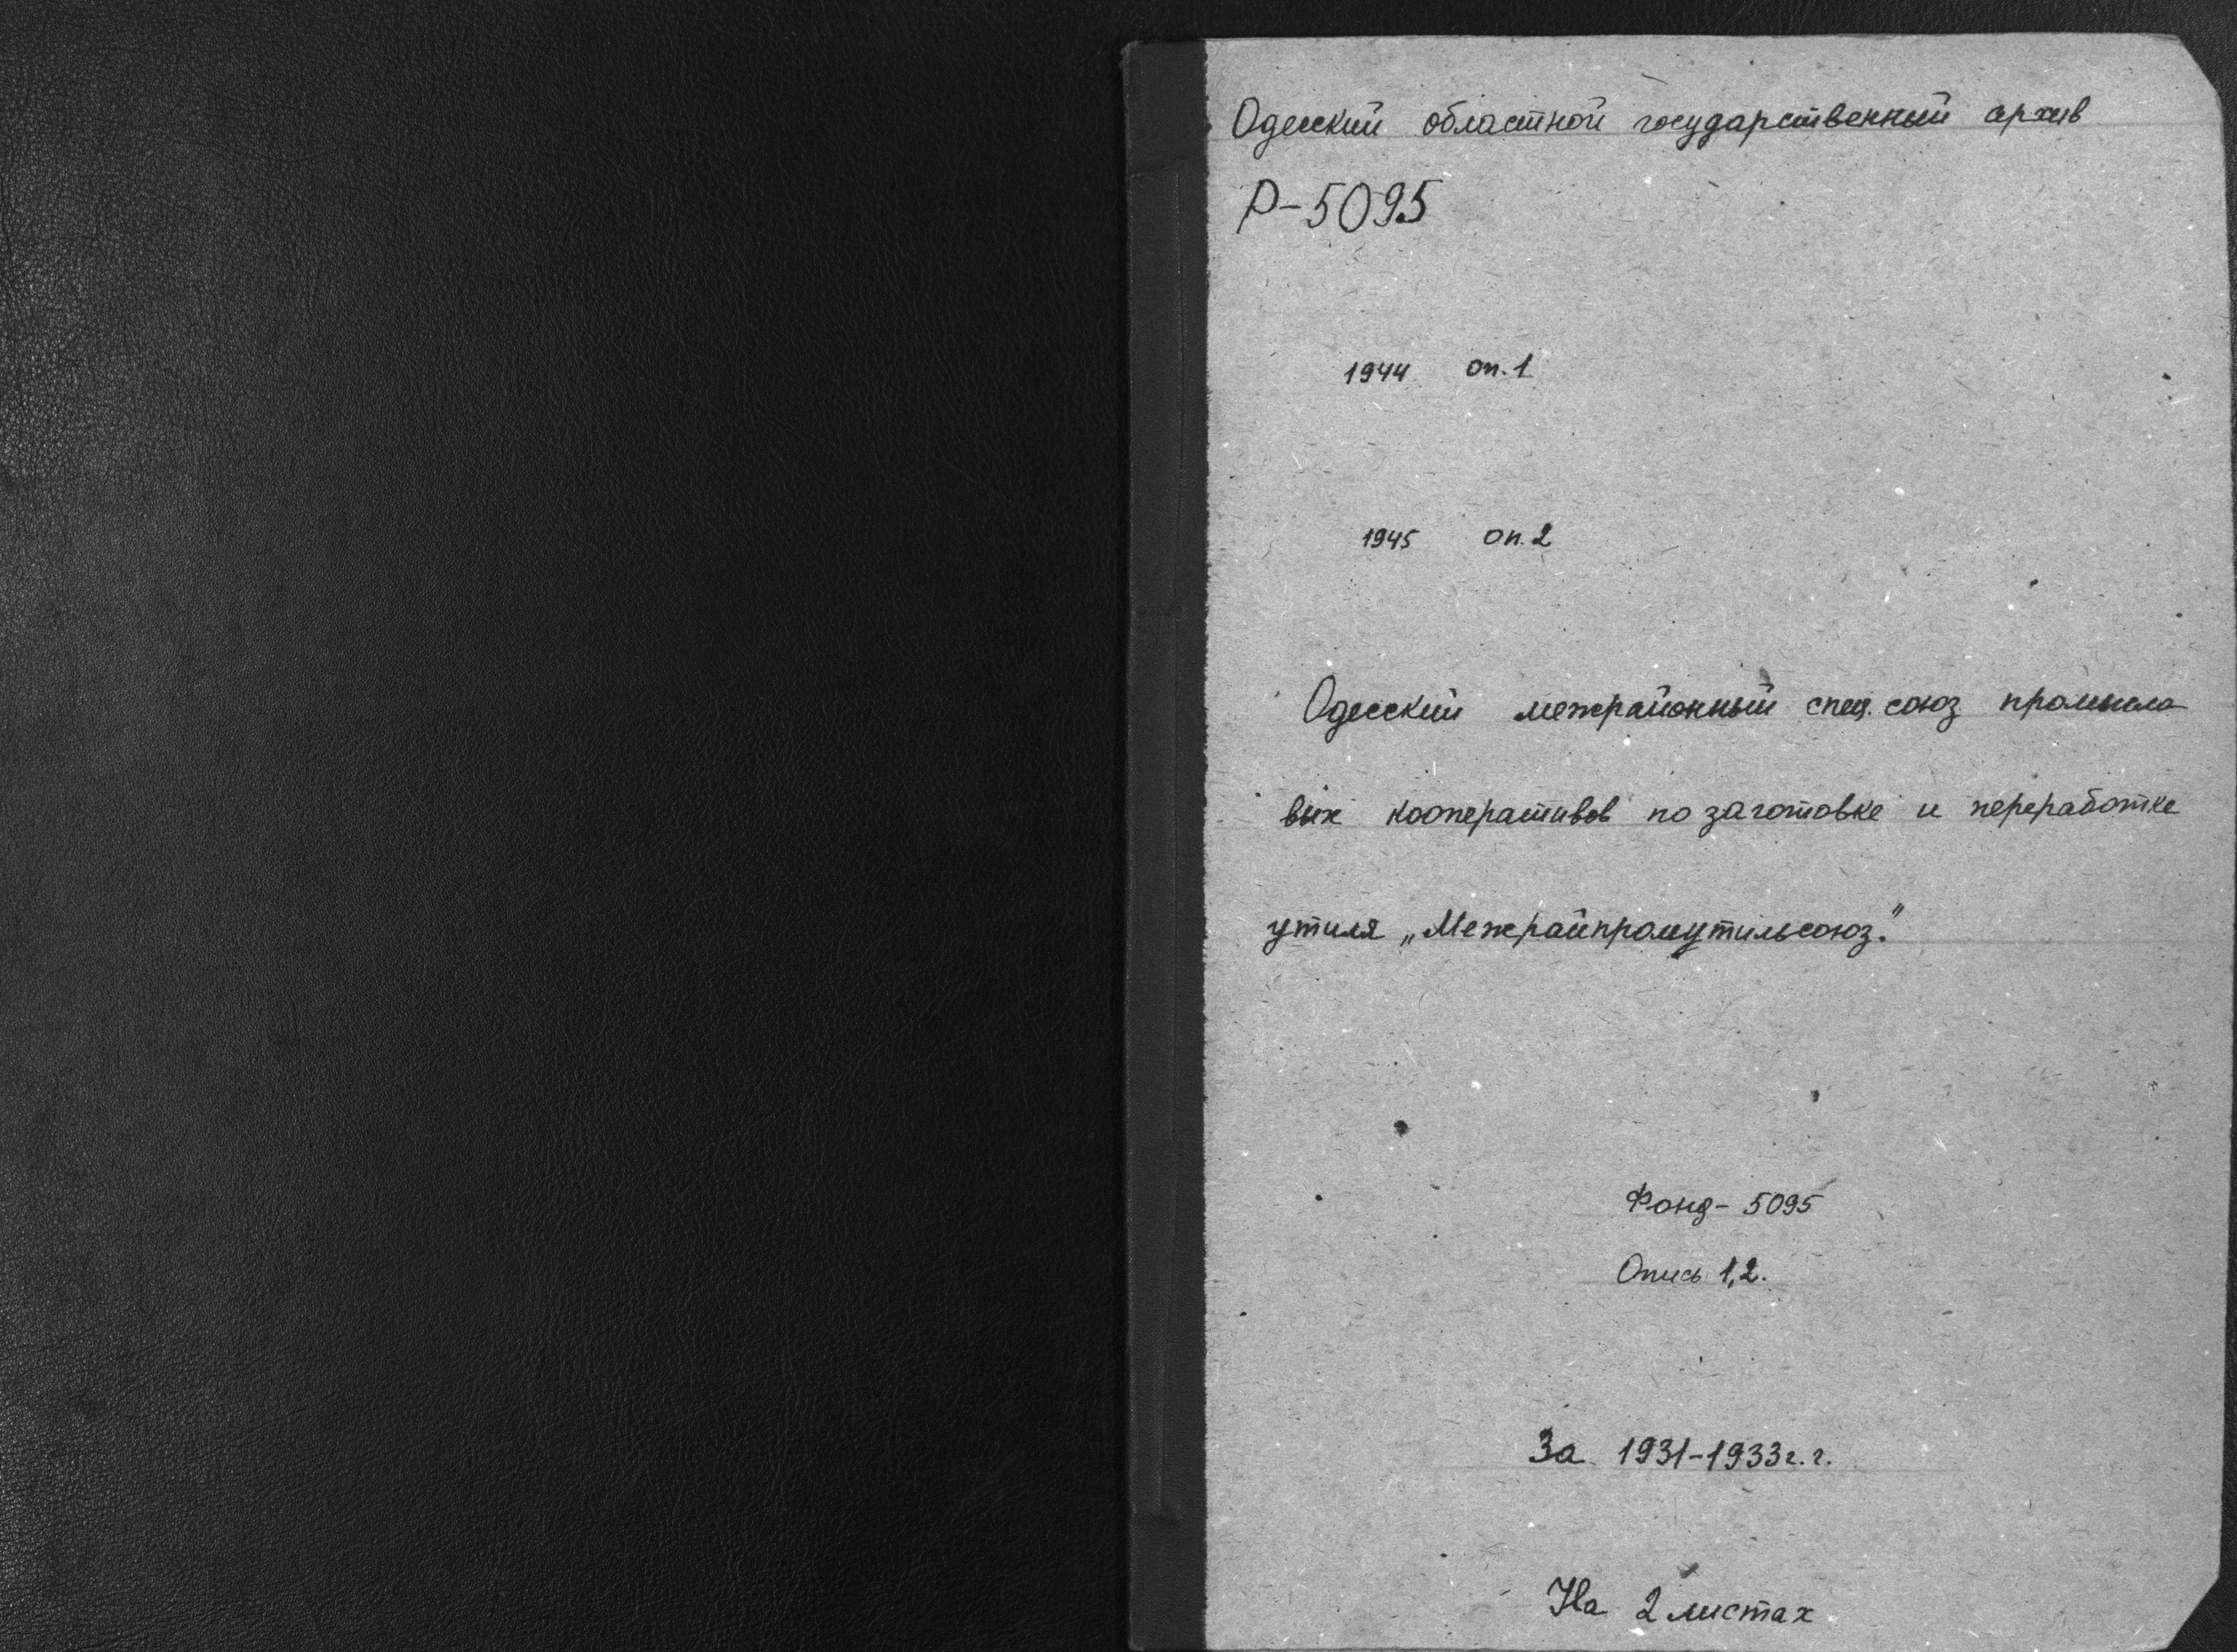 Одесский областной государственный архив
Р-5095
1944 оп.1
1945 оп.2
Одесский межрайонный спец. союз промысло
вых кооперативов по заготовке и переработке
утиля „Межрайпромутильсоюз."
Фонд - 5095
Опись 1,2.
За 1931-1933 г.г.
На 2 листах